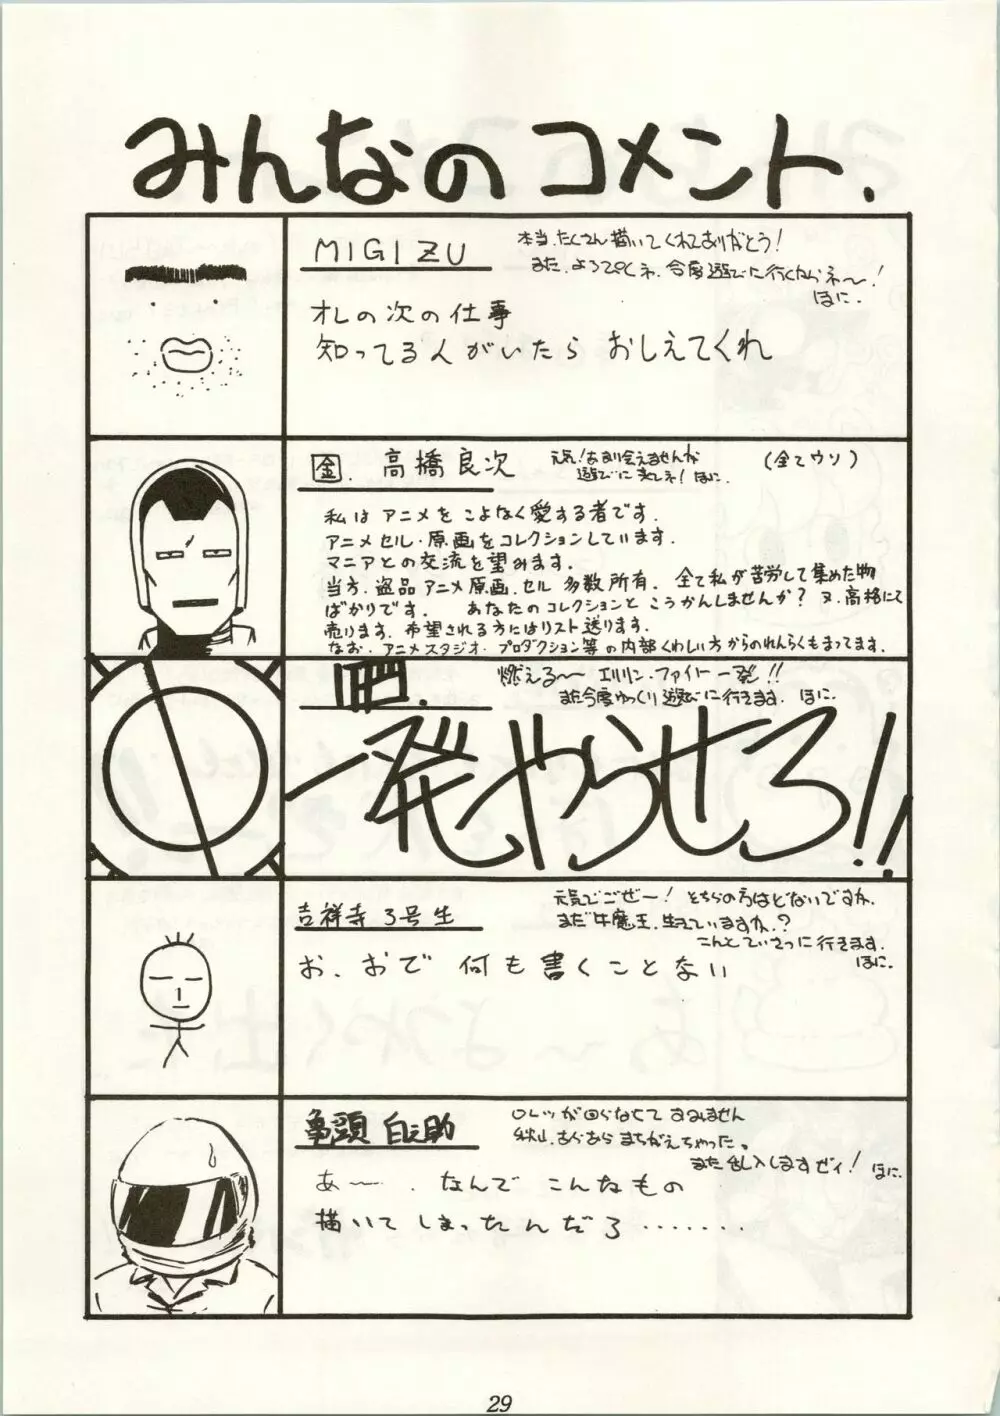 みんなのコメント.
MIGIZU
本当、たくさん描いてくれてありがとう!
また、よろぴくネ、今度遊びに行くからネ〜!
ほに.
オレの次の仕事
知ってる人がいたら おしえてくれ
金. 高橋良次
元気!あまり会えませんが
遊びに来しネ!ほに.
(全てウソ)
私はアニメをこよなく愛する者です.
アニメセル・原画をコレクションしています.
マニアとの交流を望みます.
当方、盗品アニメ原画、セル 多数所有. 全て私が苦労して集めた物
ばかりです. あなたのコレクションとこうかんしませんか? 又、高格にて
売ります. 希望される方にはリスト送ります.
なお、アニメスタジオ・プロダクション等の内部くわしい方からのれんらくもまってます.
肥.
燃える〜 エルリン・ファイバー一発!!
また今度ゆっくり遊びに行きます. ほに.
一発やらせろ!!
吉祥寺3号生
元気でごぜー! そちらの方はどないですか.
まだ牛魔王、生きていますか.?
こんどていさつに行きます.
ほに.
お、おで 何も書くことない
亀頭 白之助
ロレツが回らなくて すみません
あらあら まちがえちゃった。
また乱入しますぜィ! ほに.
あー. なんで こんなもの
描いて しまったんだろ........
29